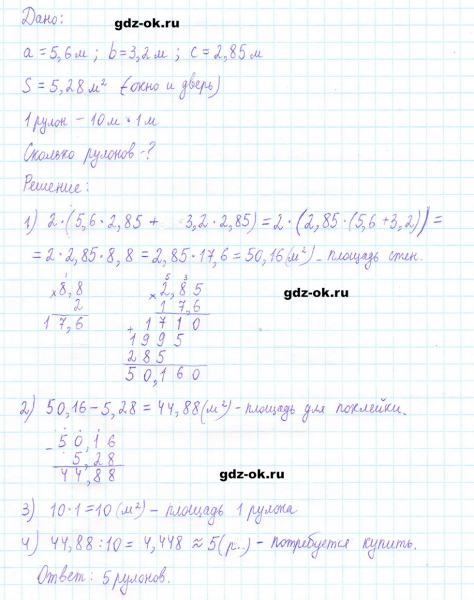 Дано:
gdz-ok.ru
a = 5,6 м ; b = 3,2 м ; c = 2,85 м
S = 5,28 м² (окно и дверь)
1 рулон – 10 м · 1 м
Сколько рулонов - ?
Решение:
gdz-ok.ru
1) 2·(5,6 · 2,85 + 3,2 · 2,85) = 2·(2,85·(5,6+3,2)) =
= 2 · 2,85 · 8,8 = 2,85 · 17,6 = 50,16 (м²) – площадь стен.
1 5 3
× 8,8 × 2,85
2 1 7,6
gdz-ok.ru
1 7,6 + 1 7 1 0
1 9 9 5
2 8 5
5 0,1 6 0
2) 50,16 – 5,28 = 44,88 (м²) – площадь для поклейки.
– 5 0,1 6
5,2 8
4 4,8 8
gdz-ok.ru
3) 10·1 = 10 (м²) – площадь 1 рулона
4) 44,88 : 10 = 4,448 ≈ 5 (р.) – потребуется купить.
Ответ: 5 рулонов.
gdz-ok.ru